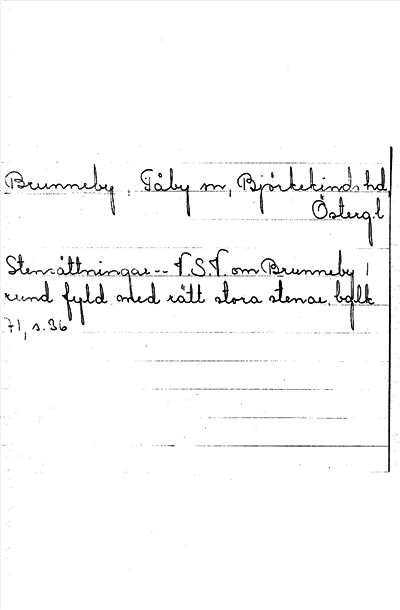 Brunneby, Tåby sn, Björkekinds hd,
Östergl
Stensättningar -- V.S.V. om Brunneby 1
rund fyld med rätt stora stenar.
71, s. 36